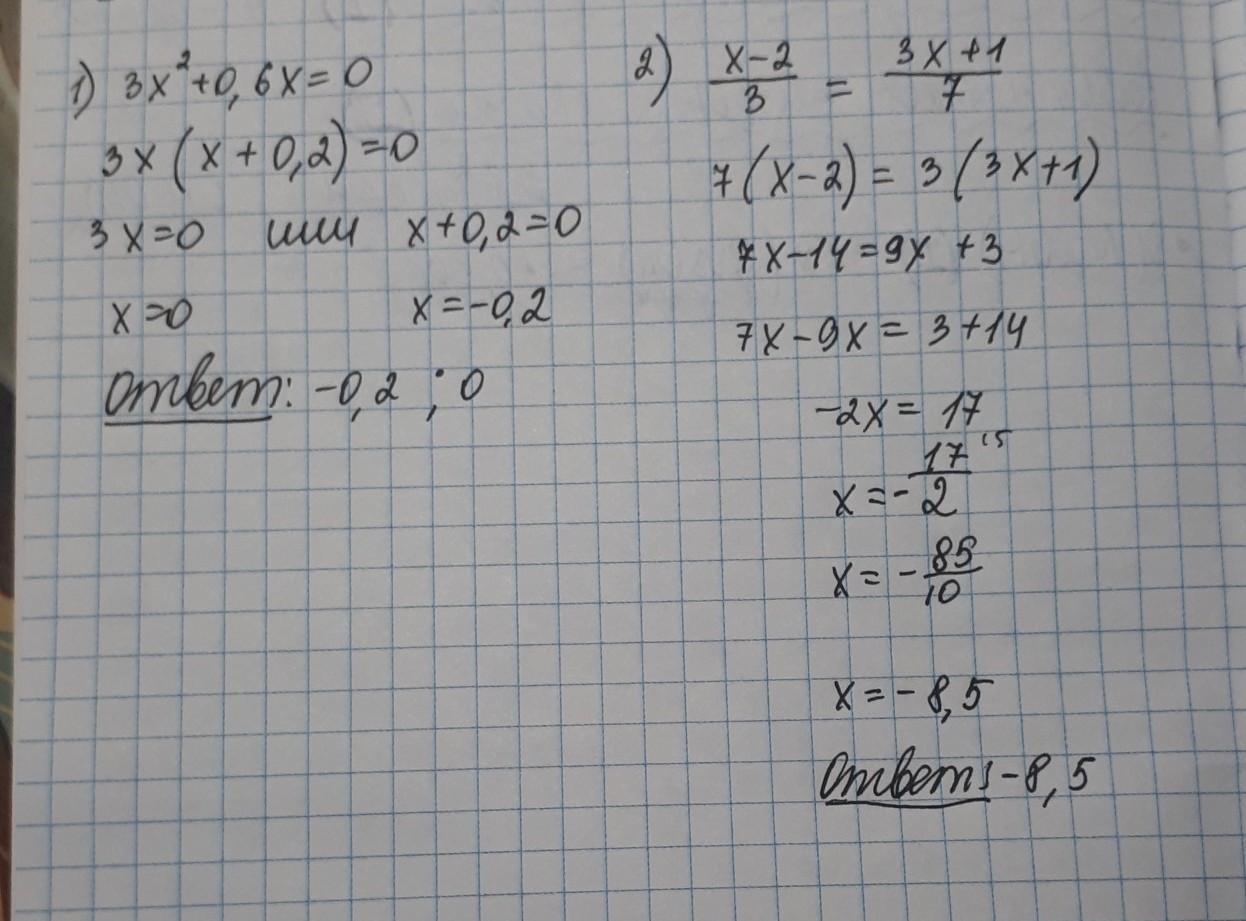 1) 3x²+0,6x=0
3x(x+0,2)=0
3x=0 или x+0,2=0
x=0 x=-0,2
Ответ: -0,2 ; 0
2) \frac{x-2}{3} = \frac{3x+1}{7}
7(x-2)= 3(3x+1)
7x-14=9x +3
7x-9x= 3+14
-2x= 17
x=-\frac{17}{2} ^{(5}
x= -\frac{85}{10}
x=-8,5
Ответ: -8,5